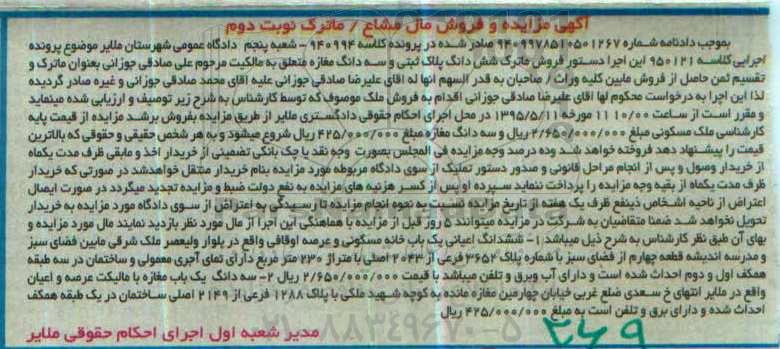 آگهی مزایده و فروش مال مشاع / ماترک نوبت دوم
بموجب دادنامه شماره ۹۴۰۹۹۷۸۵۱۰۵۰۱۲۶۷ صادر شده در پرونده کلاسه ۹۴۰۹۹۴ - شعبه پنجم دادگاه عمومی شهرستان ملایر موضوع پرونده
اجرایی کلاسه ۹۵۰۱۲۱ این اجرا دستور فروش ماترک شش دانگ پلاک ثبتی و سه دانگ مغازه متعلق به مالکیت مرحوم علی صادقی جوزانی بعنوان ماترک و
تقسیم ثمن حاصل از فروش مابین کلیه وراث / صاحبان به قدر السهم آنها له اقای علیرضا صادقی جوزانی علیه اقای محمد صادقی جوزانی و غیره صادر گردیده
لذا این اجرا به درخواست محکوم لها اقای علیرضا صادقی جوزانی اقدام به فروش ملک موصوف که توسط کارشناس به شرح زیر توصیف و ارزیابی شده مینماید
و مقرر است از ساعت ۱۰/۰۰ ۱۱ مورخه ۱۳۹۵/۵/۱۱ در محل اجرای احکام حقوقی دادگستری ملایر از طریق مزایده بفروش برسد مزایده از قیمت پایه
کارشناسی ملک مسکونی مبلغ ۲/۶۵۰/۰۰۰/۰۰۰ ریال و سه دانگ مغازه مبلغ ۴۲۵/۰۰۰/۰۰۰ ریال شروع میشود و به هر شخص حقیقی و حقوقی که بالاترین
قیمت را پیشنهاد دهد فروخته خواهد شد وده درصد وجه مزایده فی المجلس بصورت وجه نقد یا چک بانکی تضمینی از خریدار اخذ و مابقی ظرف مدت یکماه
از خریدار وصول و پس از انجام مراحل قانونی و صدور دستور تملیک از سوی دادگاه مربوطه مورد مزایده بنام خریدار منتقل خواهدشد در صورتی که خریدار
ظرف مدت یکماه از بقیه وجه مزایده را پرداخت ننماید سپرده او پس از کسر هزینه های مزایده به نفع دولت ضبط و مزایده تجدید میگردد در صورت ایصال
اعتراض از ناحیه اشخاص ذینفع ظرف یک هفته از تاریخ مزایده نسبت به نحوه انجام مزایده تا رسیدگی به اعتراض از سوی دادگاه مورد مزایده به خریدار
تحویل نخواهد شد ضمنا متقاضیان به شرکت در مزایده میتوانند ۵ روز قبل از مزایده با هماهنگی این اجرا از مال مورد نظر بازدید نمایند مال مورد مزایده و
بهای آن طبق نظر کارشناس به شرح ذیل میباشد ۱- ششدانگ اعیانی یک باب خانه مسکونی و عرصه اوقافی واقع در بلوار ولیعصر ملک شرقی مابین فضای سبز
و مدرسه اندیشه قطعه چهارم از فضای سبز با شماره پلاک ۳۶۵۲ فرعی از ۲۰۴۳ اصلی با متراژ ۲۳۰ متر مربع دارای نمای آجری معمولی و ساختمان در سه طبقه
همکف اول و دوم احداث شده است و دارای آب وبرق و تلفن میباشد با قیمت ۲/۶۵۰/۰۰۰/۰۰۰ ریال ۲- سه دانگ یک باب مغازه با مالیکت عرصه و اعیان
واقع در ملایر انتهای خ سعدی ضلع غربی خیابان چهارمین مغازه مانده به کوچه شهید ملکی با پلاک ۱۲۸۸ فرعی از ۲۱۴۹ اصلی ساختمان در یک طبقه همکف
احداث شده و دارای برق و تلفن است به مبلغ ۴۲۵/۰۰۰/۰۰۰ ریال
مدیر شعبه اول اجرای احکام حقوقی ملایر